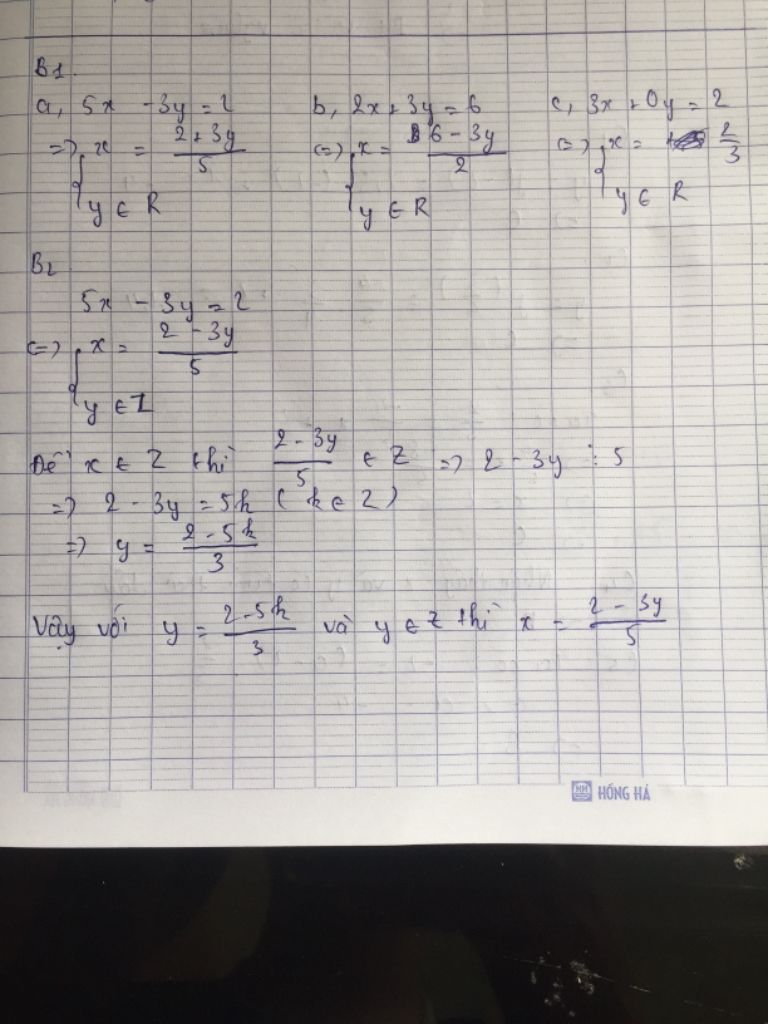 B1.
a, 5x - 3y = 2 b, 2x + 3y = 6 c, 3x + 0y = 2
=> { x = (2 + 3y)/5 <=> { x = (6 - 3y)/2 <=> { x = 2/3
y ∈ R y ∈ R y ∈ R
B2
5x - 3y = 2
<=> { x = (2 - 3y)/5
y ∈ Z
Để x ∈ Z thì (2 - 3y)/5 ∈ Z => 2 - 3y ⋮ 5
=> 2 - 3y = 5k (k ∈ Z)
=> y = (2 - 5k)/3
Vậy với y = (2 - 5k)/3 và y ∈ Z thì x = (2 - 3y)/5
HH HỒNG HÀ